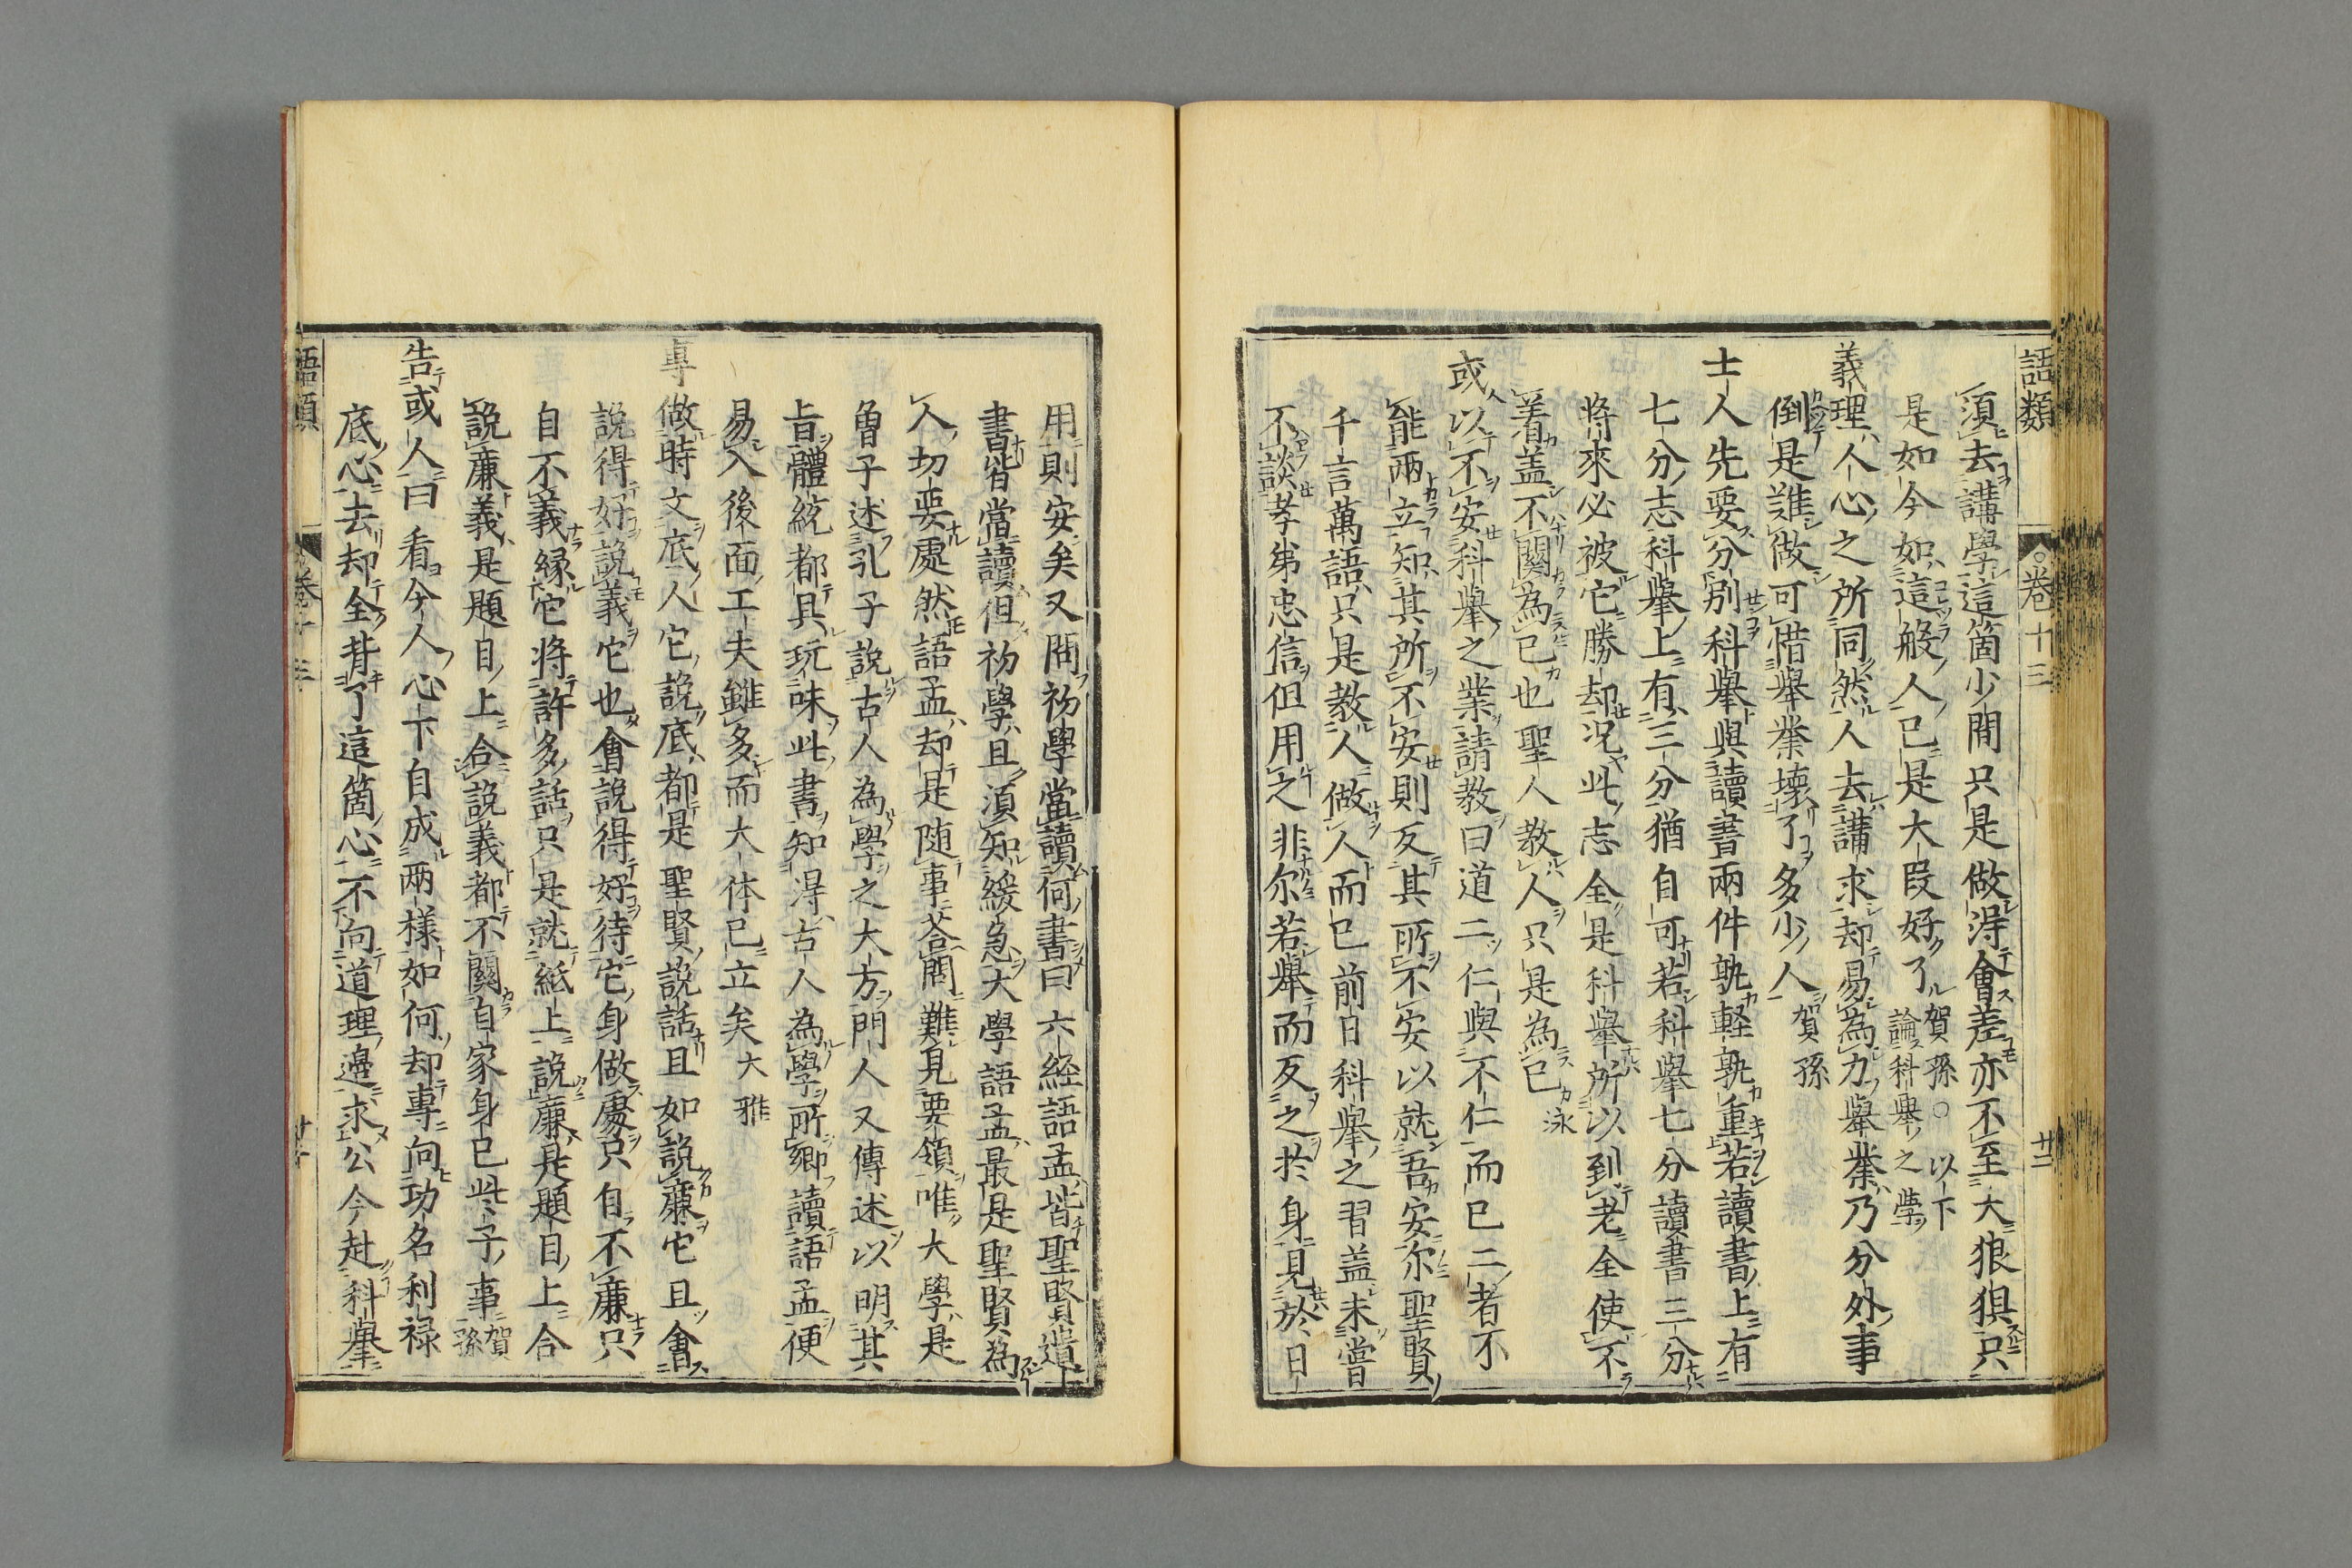 語類
卷十三
廿二
須去講學這箇少間只是做得會差亦不至大狼狽只
是如今如這般人已是大段好了賀孫○以下論科舉之業
義理人心之所同然人去講求却易為力舉業乃分外事
倒是難做可惜舉業壞了多少人賀孫
士人先要分別科舉與讀書兩件孰軽孰重若讀書上有
七分志科舉上有三分猶自可若科舉七分讀書三分
將來必被它勝却况此志全是科舉所以到老全使不
着盖不關為已也聖人教人只是為已泳
或以不安科舉之業請教曰道二仁與不仁而已二者不
能兩立知其所不安則反其所不安以就吾安尔聖賢
千言萬語只是教人做人而已前日科舉之習盖未嘗
不談孝弟忠信但用之非尔若舉而反之於身見於日
用則安矣又問初學當讀何書曰六経語孟皆聖賢遺
書皆當讀但初學且須知緩急大學語孟最是聖賢為
人切要處然語孟却是随事荅問難見要領唯大學是
曽子述孔子說古人為學之大方門人又傳述以明其
旨體統都具玩味此書知得古人為學所鄉讀語孟便
易入後面工夫雖多而大体已立矣大雅
專做時文底人它說底都是聖賢說話且如說廉它且會
說得好說義它也會說得好待它身做處只自不廉只
自不義縁它將許多話只是就紙上說廉是題目上合
說廉義是題目上合說義都不關自家身已些子事賀孫
告或人曰看今人心下自成兩樣如何却專向功名利禄
底心去却全背了這箇心不向道理邊求公今赴科舉
語類
卷十三